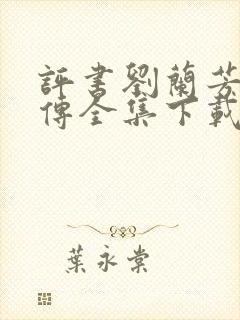 評書劉蘭芳
傳全集下載
葉永棠